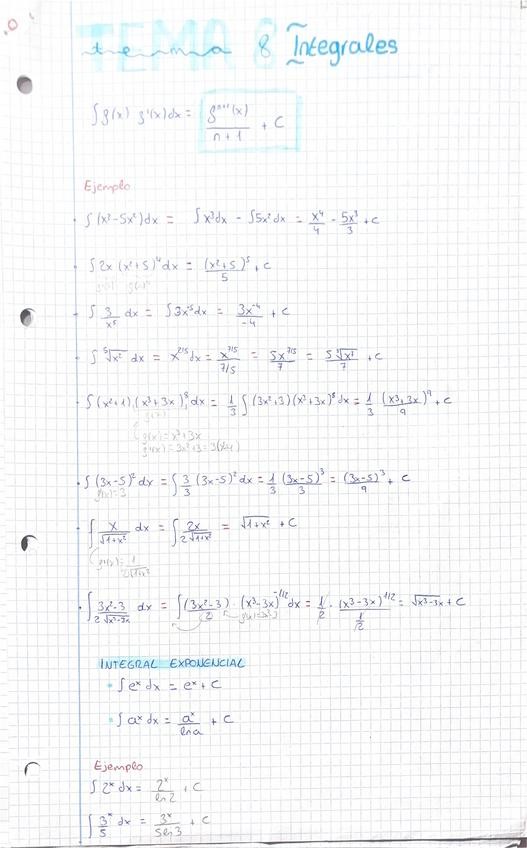 TEMA 8 Integrales
tema
∫ f(x) f'(x) dx = fⁿ⁺¹(x)/(n+1) + C
Ejemplo
∫ (x³-5x²) dx = ∫x³dx - ∫5x²dx = x⁴/4 - 5x³/3 + C
∫ 2x (x²+5)⁴ dx = (x²+5)⁵/5 + C
∫ 3/x⁵ dx = ∫3x⁻⁵dx = 3x⁻⁴/-4 + C
∫ ⁵√x² dx = x^(2/5) dx = x^(7/5)/(7/5) = 5x^(7/5)/7 = 5 ⁵√x⁷/7 + C
∫ (x²+1).(x³+3x)⁸ dx = 1/3 ∫ (3x²+3)(x³+3x)⁸ dx = 1/3 (x³+3x)⁹/9 + C
g(x) = x³+3x
g'(x) = 3x²+3 = 3(x²+1)
∫ (3x-5)² dx = ∫ 3/3 (3x-5)² dx = 1/3 (3x-5)³/3 = (3x-5)³/9 + C
g'(x) = 3
∫ x/√(1+x²) dx = ∫ 2x/(2√(1+x²)) = √(1+x²) + C
∫ (3x²-3)/(2√(x³-3x)) dx = ∫ (3x²-3)/2 · (x³-3x)^(-1/2) dx = 1/2 · (x³-3x)^(1/2)/(1/2) = √(x³-3x) + C
INTEGRAL EXPONENCIAL
∫ eˣ dx = eˣ + C
∫ aˣ dx = aˣ/ln a + C
Ejemplo
∫ 2ˣ dx = 2ˣ/ln 2 + C
∫ 3ˣ/5 dx = 3ˣ/5ln3 + C